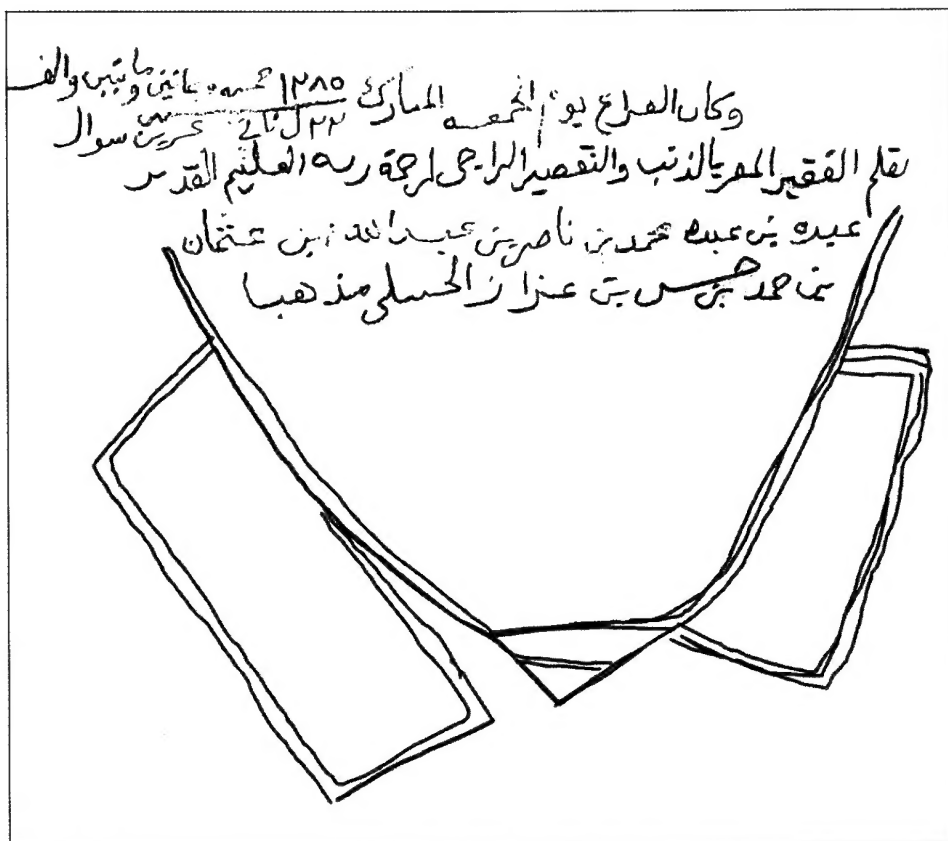 وكان الفراغ يوم الجمعه المبارك ١٢٨٥ خمسه وثمانين ومايتين والف
٢٢ ل ثاني عشرين شوال
بقلم الفقير المقر بالذنب والتقصير الراجي لرحمة ربه العليم القدير
عبده بن عبده محمد بن ناصر بن عبد الله بن عثمان
بن حمد بن حسن بن الحنبلي مذهبا